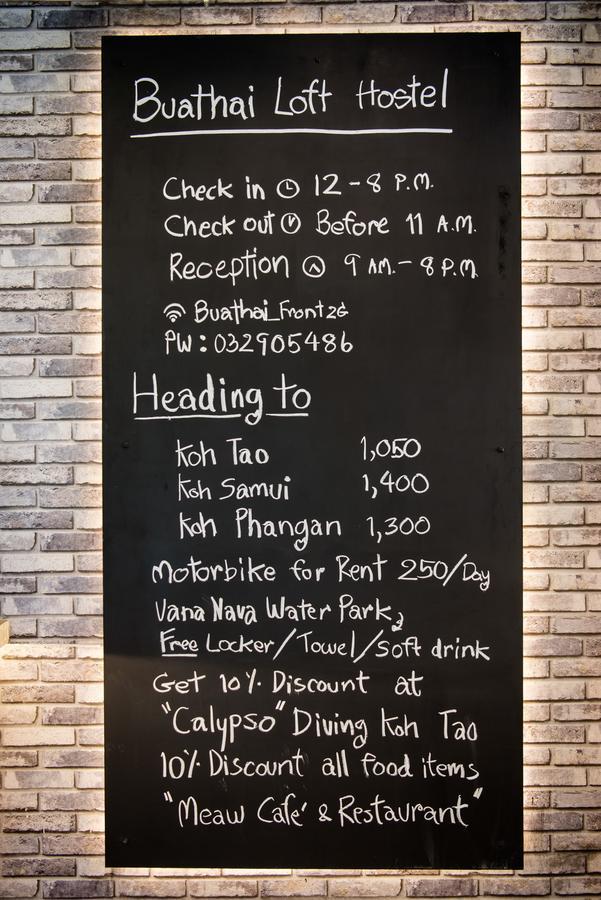 Buathai Loft Hostel
Check in 12 - 8 P.M.
Check out Before 11 A.M.
Reception 9 AM. - 8 P.M.
Buathai_Front2G
PW : 032905486
Heading to
Koh Tao 1,050
Koh Samui 1,400
Koh Phangan 1,300
Motorbike for Rent 250/Day
Vana Nava Water Park,
Free Locker/Towel/Soft drink
Get 10% Discount at
"Calypso" Diving Koh Tao
10% Discount all food items
"Meaw Cafe' & Restaurant"